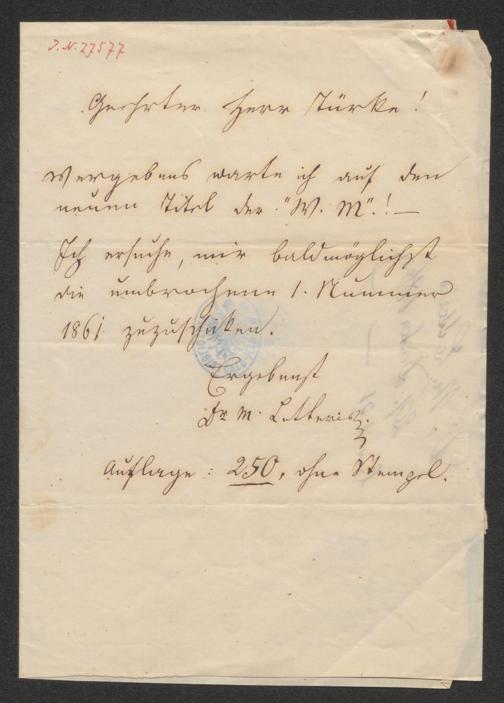 J.N. 27577
Geehrter Herr Türke!
Vergebens warte ich auf den
neuen Titel der "W. M".! —
Ich ersuche, mir baldmöglichst
die umbrochene 1. Nummer
1861 zuzuschicken.
Ergebenst
Dr M. Letteris
Auflage: 250, ohne Stempel.